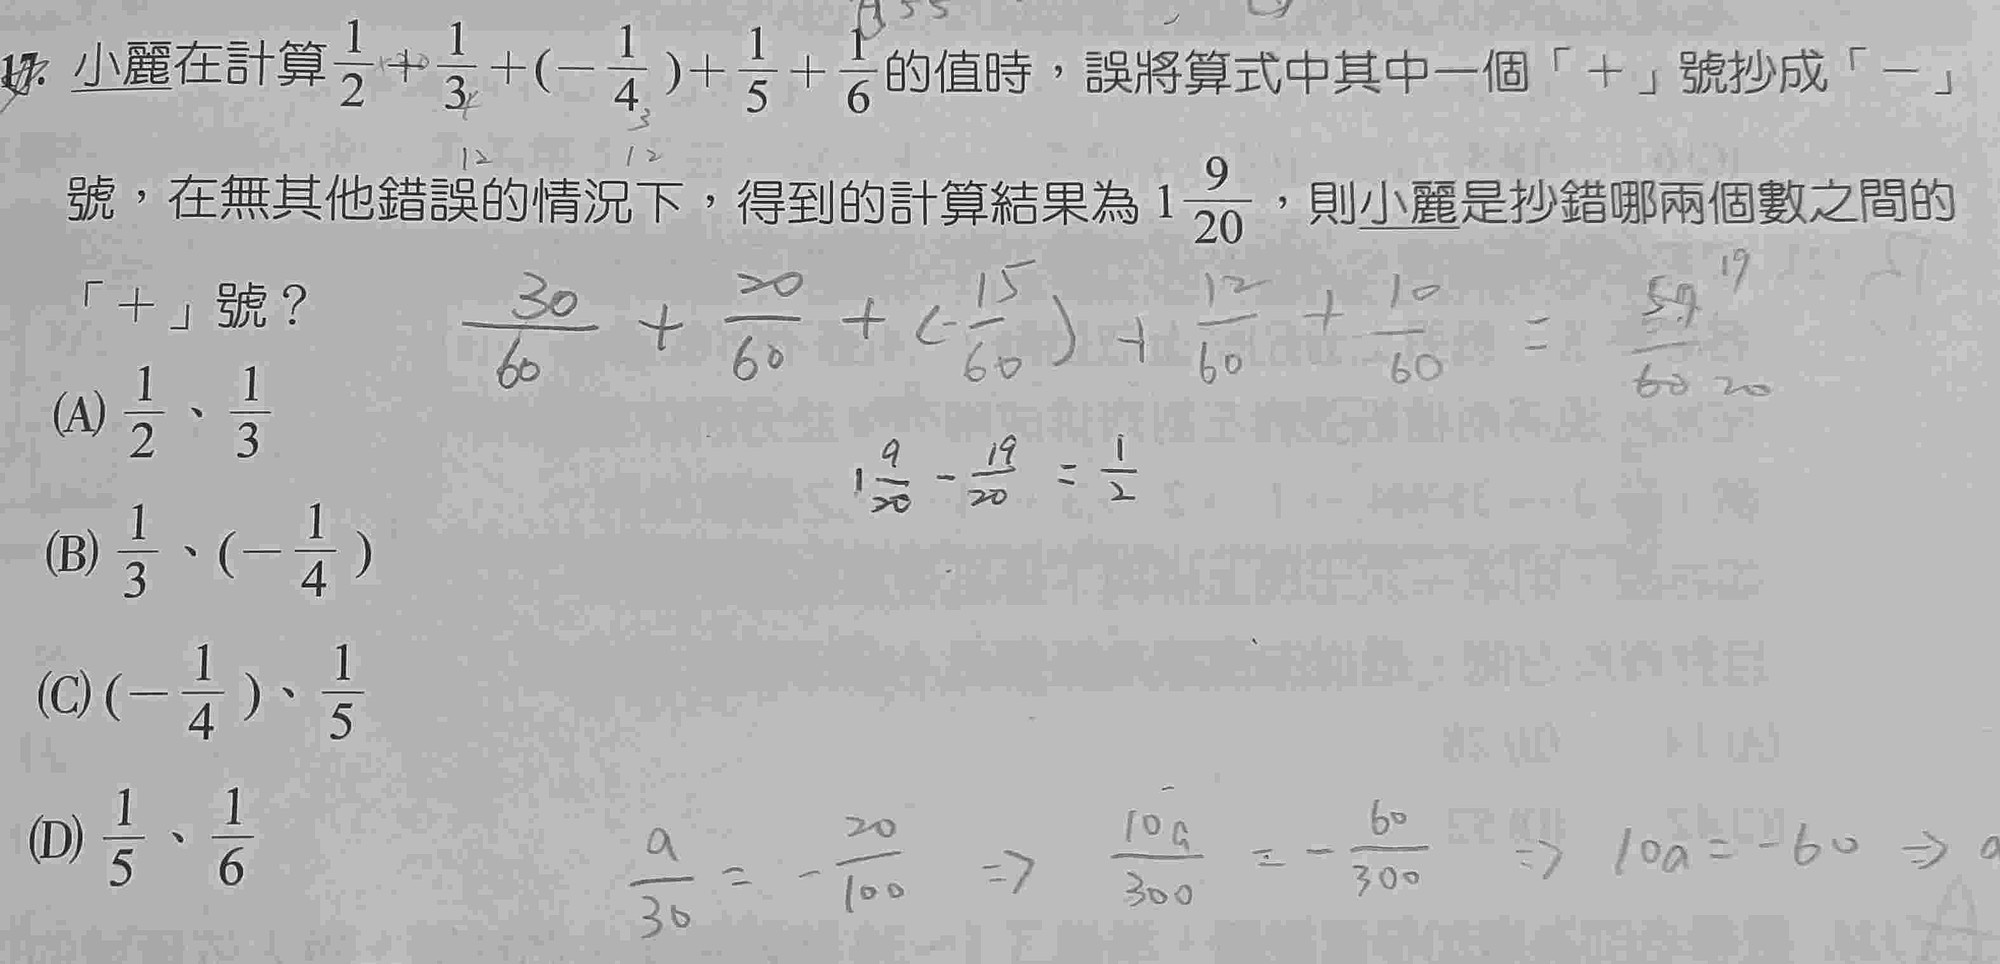 17. 小麗在計算 1/2 + 1/3 + (− 1/4) + 1/5 + 1/6 的值時，誤將算式中其中一個「＋」號抄成「－」
4 3
12 12
號，在無其他錯誤的情況下，得到的計算結果為 1 9/20，則小麗是抄錯哪兩個數之間的
「＋」號？
30/60 + 20/60 + (- 15/60) + 12/60 + 10/60 = 57/60 19/20
(A) 1/2、1/3
1 9/20 - 19/20 = 1/2
(B) 1/3、(− 1/4)
(C) (− 1/4)、1/5
(D) 1/5、1/6
a/30 = - 20/100 => 10a/300 = - 60/300 => 10a = -60 =>